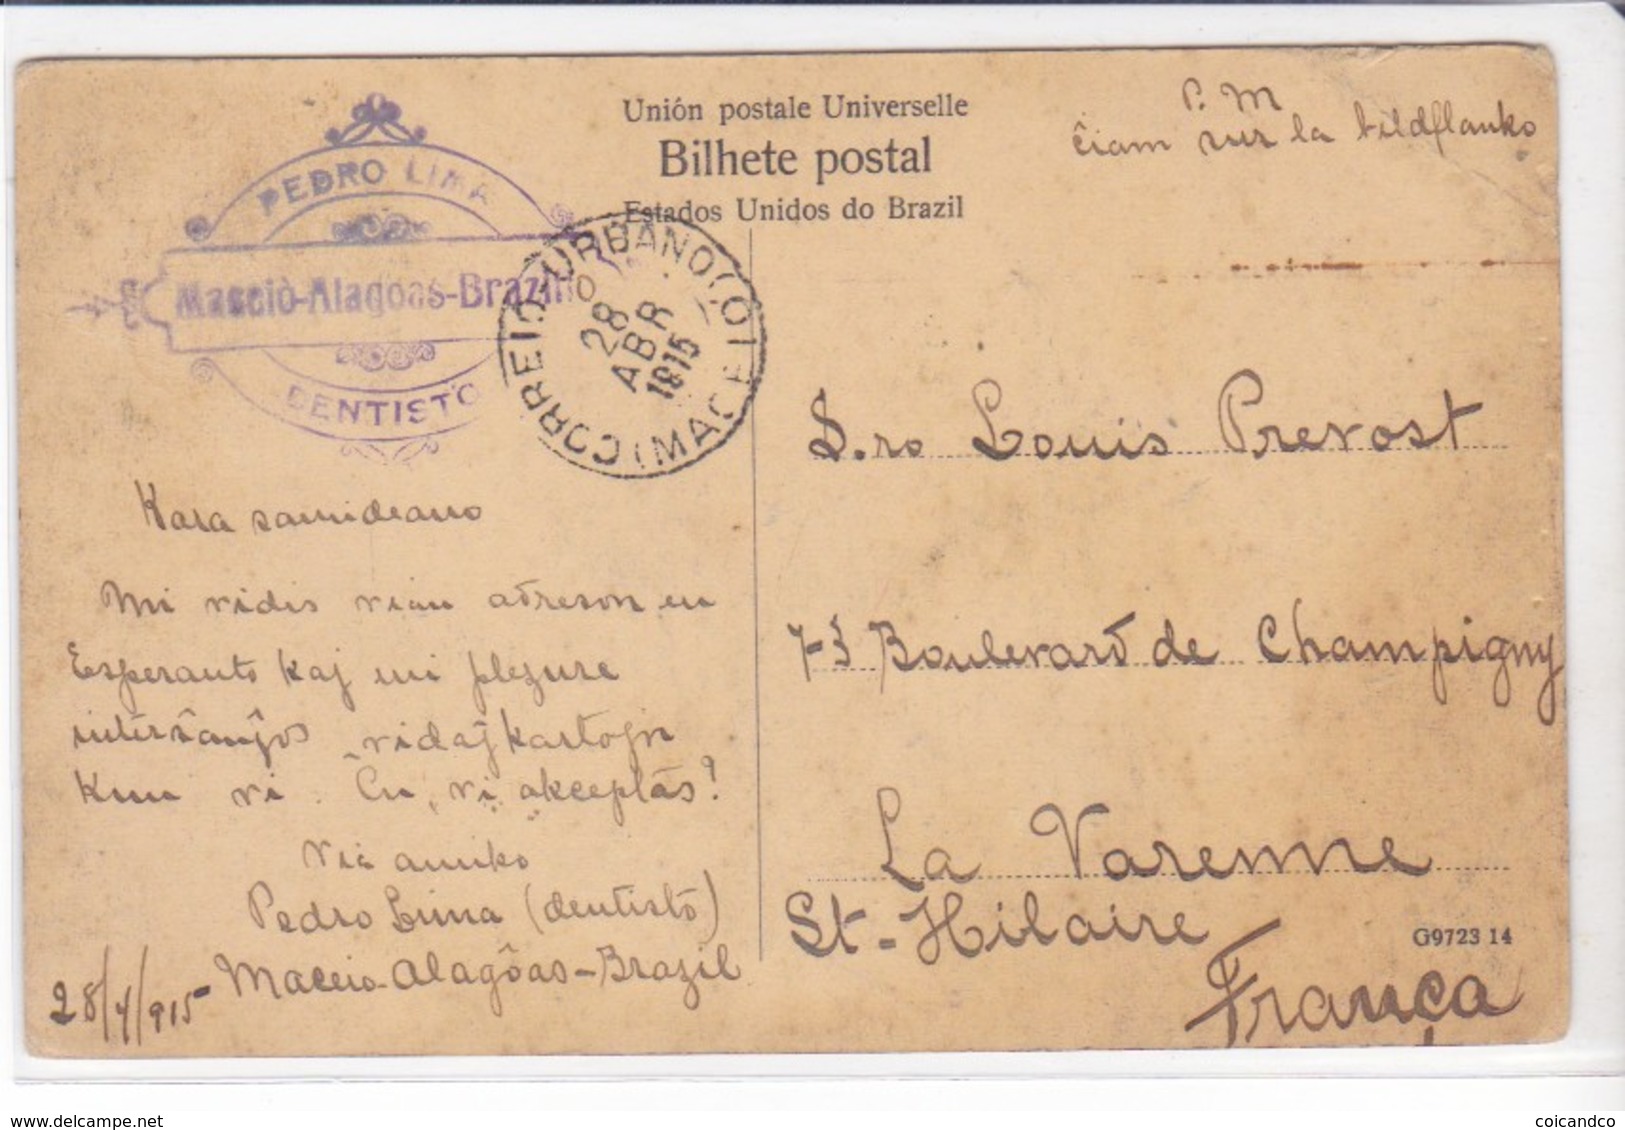 Unión postale Universelle
Bilhete postal
Estados Unidos do Brazil
P. M
ĉiam sur la bildflanko
PEDRO LIMA
Maceiò-Alagoas-Brazilio
DENTISTO
CORREIO URBANO (MACEIO)
28
ABR
1915
Kara samideano
Mi vidis vian adreson en
Esperanto kaj mi plezure
interŝanĝos vidaĵkartojn
kun vi. Ĉu vi akceptas?
Via amiko
Pedro Lima (dentisto)
Maceio-Alagôas-Brazil
28/4/915
S.ro Louis Prevost
73 Boulevard de Champigny
La Varenne
St-Hilaire
França
G9723 14
www.delcampe.net
coicandco